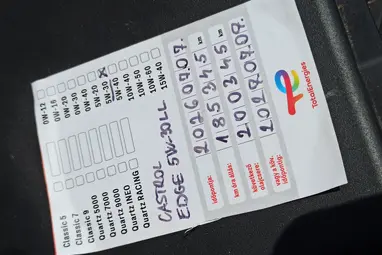 0W-12
0W-16
0W-20
0W-30
0W-40
5W-30
5W-40
10W-40
10W-50
10W-60
15W-40
Classic 5
Classic 7
Classic 9
Quartz 5000
Quartz 7000
Quartz 9000
Quartz INEO
Quartz RACING
CASTROL
EDGE 5W-30LL
időpontja:
2026.07.07.
km óra állás:
185345 km
következő
olajcsere:
200345 km
vagy a köv.
időpontja:
2027.07.07.
TotalEnergies